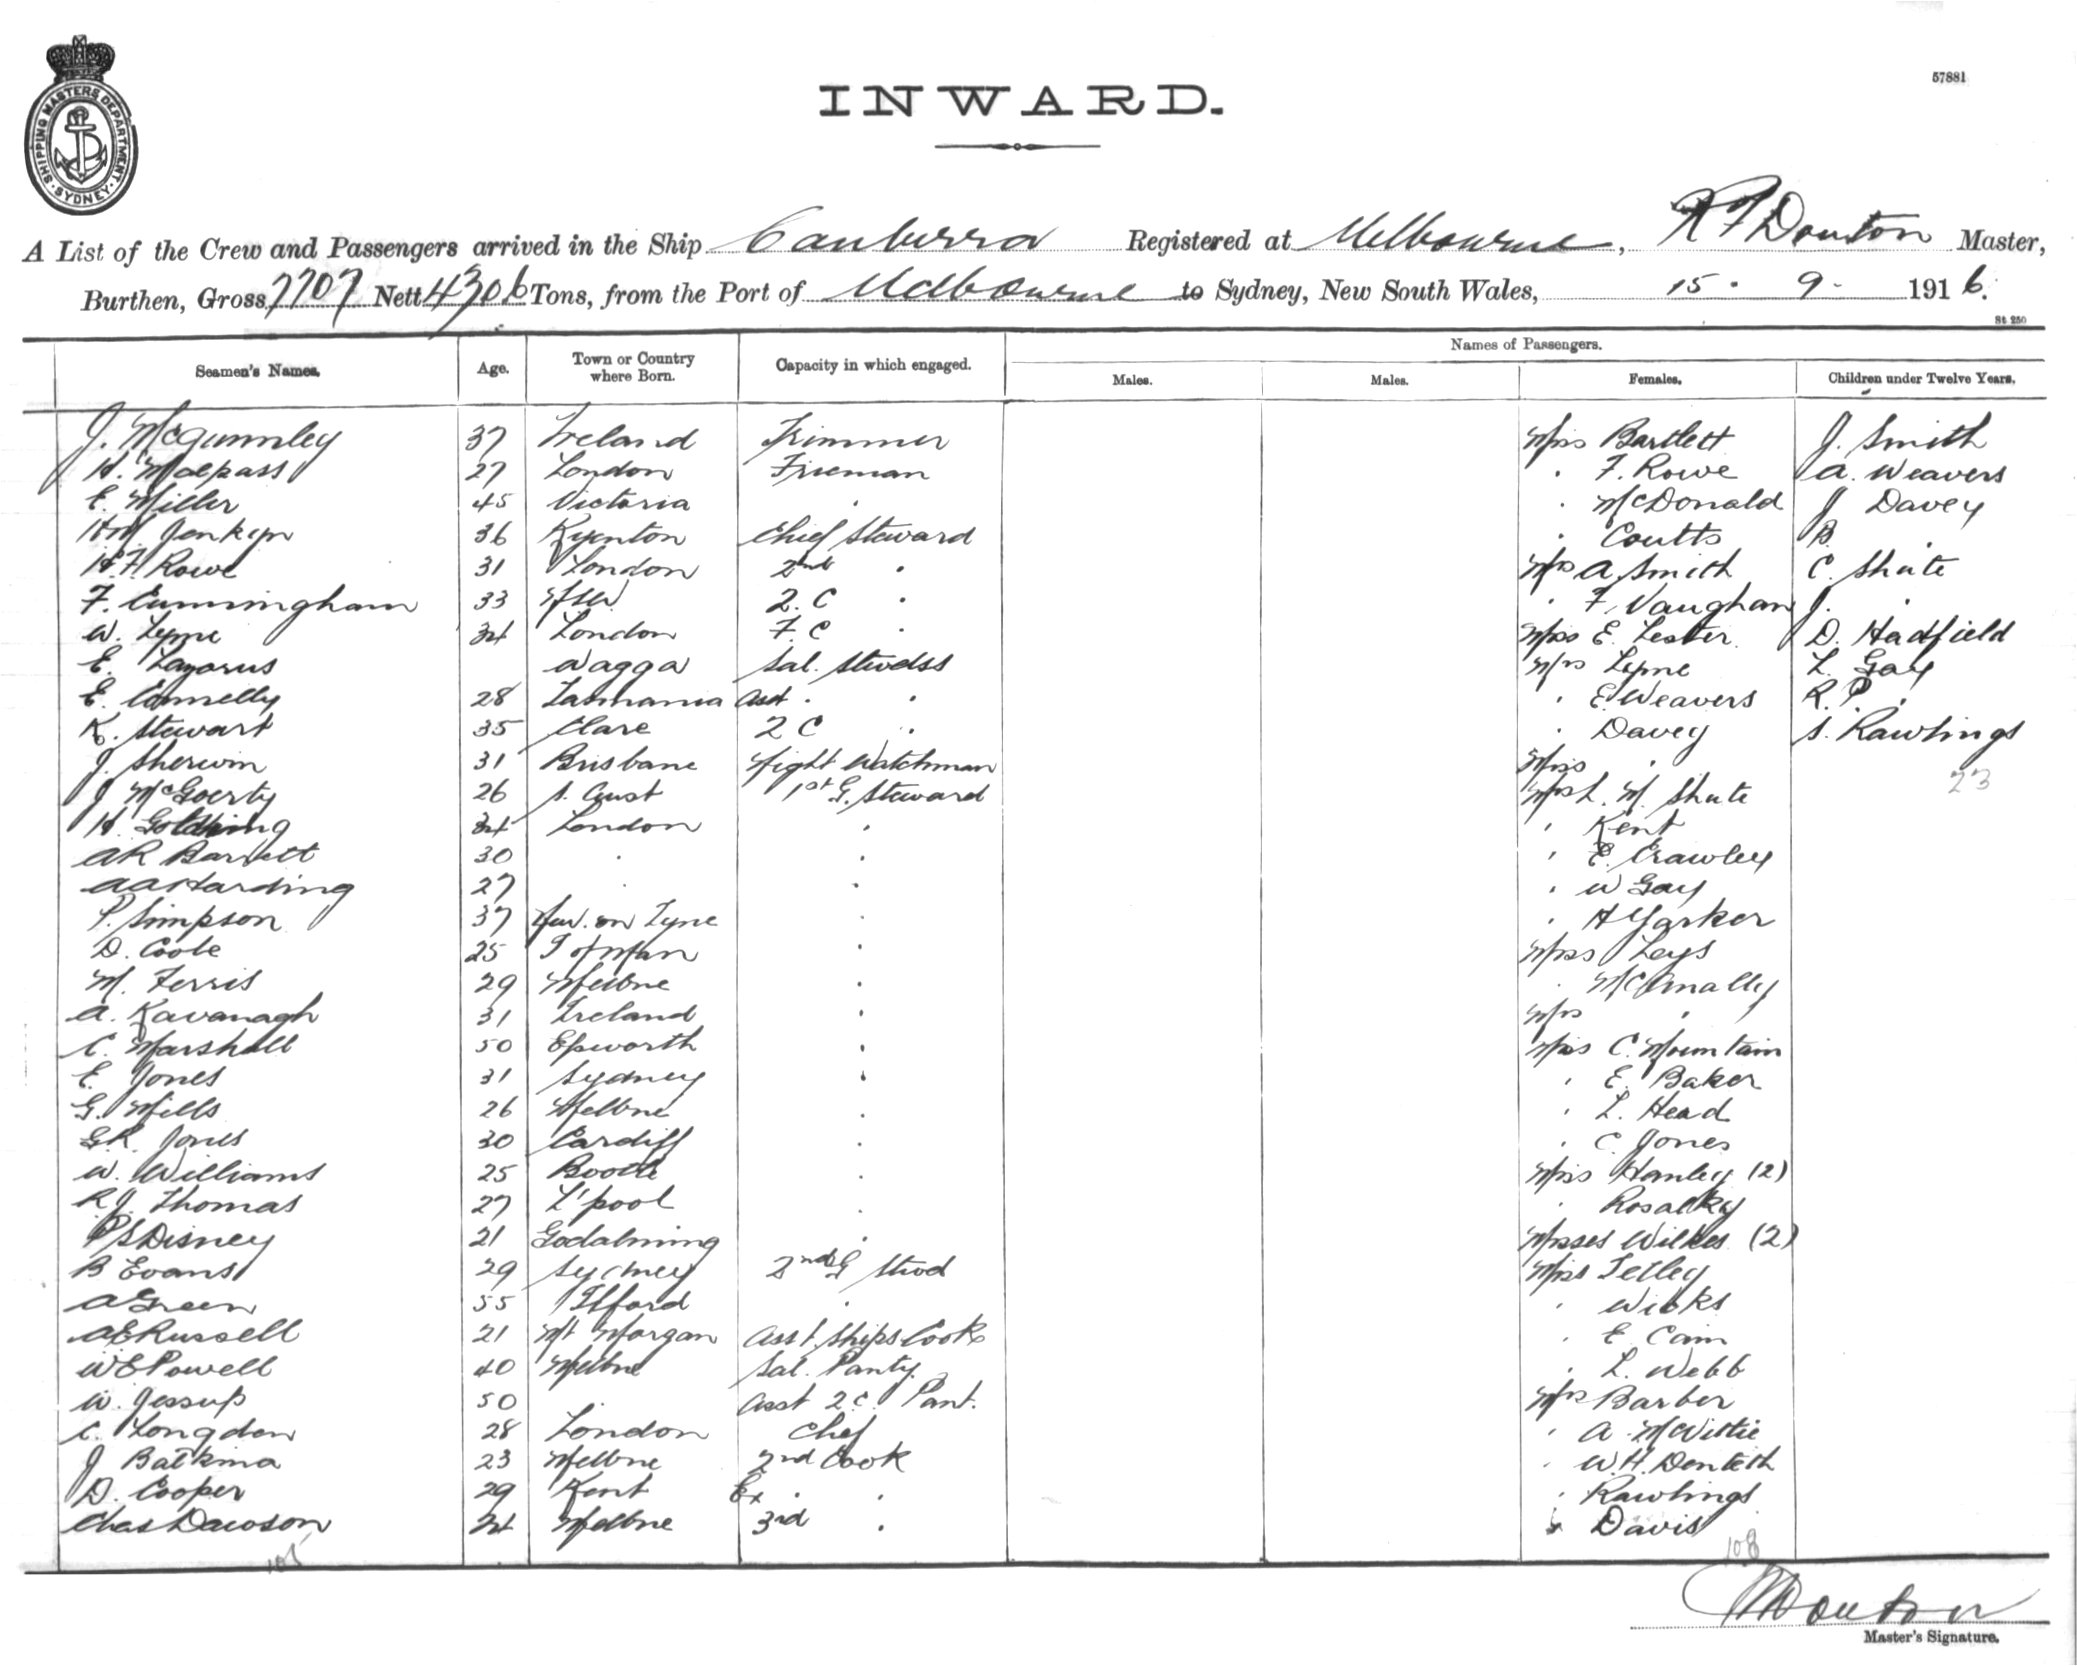 SHIPPING MASTERS DEPARTMENT SYDNEY
57881
INWARD.
A List of the Crew and Passengers arrived in the Ship Canberra Registered at Melbourne, Master,
Burthen, Gross 7707 Nett 4306 Tons, from the Port of Melbourne to Sydney, New South Wales, 15. 9. 1916.
St 250
Seamen's Names. Age. Town or Country where Born. Capacity in which engaged. Names of Passengers.
Males. Males. Females. Children under Twelve Years.
J. McGunnley 37 Ireland Trimmer Miss Bartlett J. Smith
H. Malpass 27 London Fireman " F. Rowe A. Weavers
E. Miller 45 Victoria " " McDonald J Davey
H M Jenkyn 36 Kynton Chief Steward " Coutts B. "
H F Rowe 31 London 2nd " Mrs A Smith C. Shute
F. Cunningham 33 NSW 2. C " " F. Vaughan J. "
W. Lyne 34 London F. C " Miss E. Lester D. Hadfield
E. Lazarus Wagga Sal. Stwdss Mrs Lyne L. Gay
E. Connelly 28 Tasmania Asst " " " E. Weavers R. P. "
K. Stewart 35 Clare 2 C " " Davey S. Rawlings
J. Sherwin 31 Brisbane Night Watchman Miss "
J McGoerty 26 S. Aust 1st G. Steward Mrs L. M. Shute 23
H. Golding 34 London " " Kent
A R Barrett 30 " " " E. Crawley
A A Harding 27 " " " W Gay
P. Simpson 37 New. on Tyne " " H Yarker
D. Coole 25 I of Man " Miss Leys
M. Ferris 29 Melbne " " McAnally
A. Kavanagh 31 Ireland " Mrs "
C. Marshall 50 Epworth " Miss C. Mountain
E. Jones 31 Sydney " " E. Baker
G. Mills 26 Melbne " " L. Head
G R. Jones 30 Cardiff " " C. Jones
W. Williams 25 Bootle " Miss Hanley (2)
R J. Thomas 27 L'pool " "
P S Disney 21 Godalming " Misses Wilkes (2)
B Evans 29 Sydney 2nd G Stwd Miss Tetley
A Green 55 Ilford " " Wicks
A E Russell 21 Mt Morgan Asst Ships Cook " E. Cain
W E Powell 40 Melbne Sal. Panty. " L. Webb
W. Jessup 50 " Asst 2 C. Pant. Mrs Barber
C. Longdon 28 London Chef " A. McWittie
J 23 Melbne 2nd Cook " W. H.
D. Cooper 29 Kent Ex. " " Rawlings
Chas Dawson 24 Melbne 3rd " " Davis
108
Master's Signature.